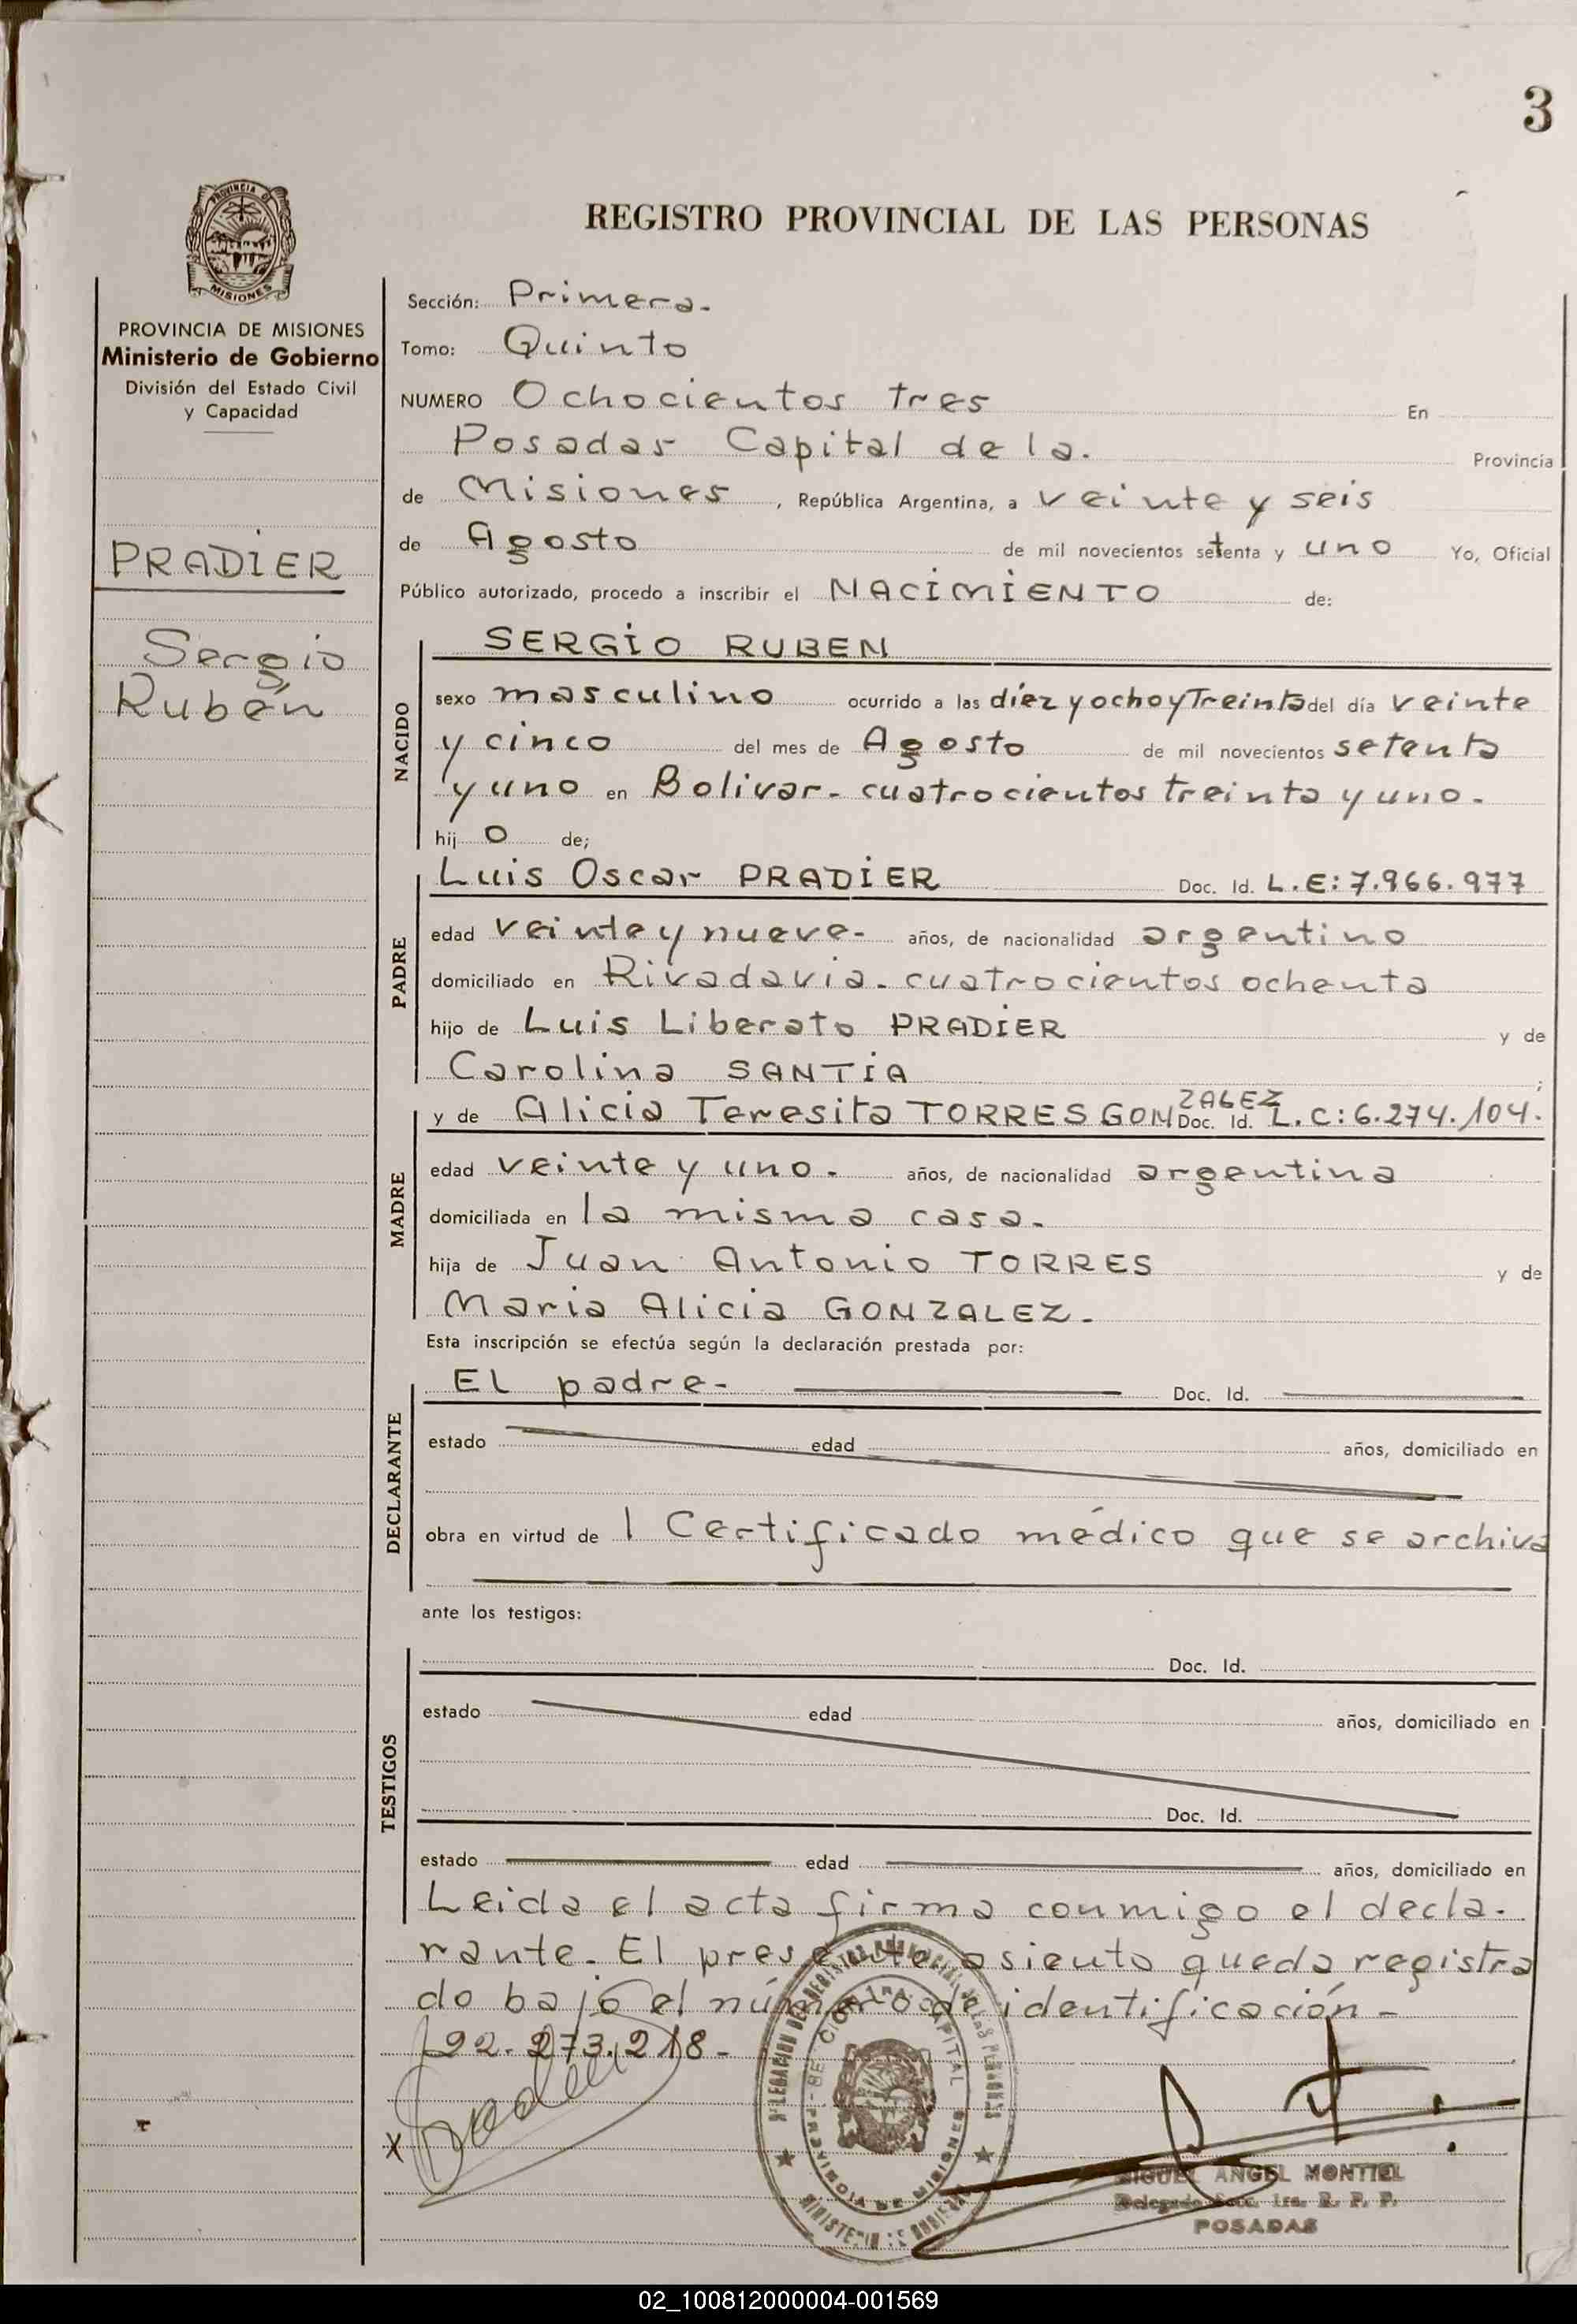 3
PROVINCIA DE
MISIONES
REGISTRO PROVINCIAL DE LAS PERSONAS
PROVINCIA DE MISIONES
Ministerio de Gobierno
División del Estado Civil
y Capacidad
PRADIER
Sergio
Rubén
Sección: Primera.
Tomo: Quinto
NUMERO Ochocientos tres En
Posadas Capital de la. Provincia
de Misiones, República Argentina, a veinte y seis
de Agosto de mil novecientos setenta y uno Yo, Oficial
Público autorizado, procedo a inscribir el NACIMIENTO de:
NACIDO
SERGIO RUBEN
sexo masculino ocurrido a las díez y ocho y Treinta del día veinte
y cinco del mes de Agosto de mil novecientos setenta
y uno en Bolivar- cuatrocientos treinta y uno-
hijo de;
PADRE
Luis Oscar PRADIER Doc. Id. L.E: 7.966.977
edad veinte y nueve- años, de nacionalidad argentino
domiciliado en Rivadavia- cuatrocientos ochenta
hijo de Luis Liberato PRADIER y de
Carolina SANTIA ;
MADRE
y de Alicia Teresita TORRES GONZALEZ Doc. Id. L.C: 6.274.104.
edad veinte y uno- años, de nacionalidad argentina
domiciliada en la misma casa-
hija de Juan Antonio TORRES y de
Maria Alicia GONZALEZ-
Esta inscripción se efectúa según la declaración prestada por:
DECLARANTE
El padre- Doc. Id.
estado edad años, domiciliado en
obra en virtud de 1 Certificado médico que se archiva
ante los testigos:
TESTIGOS
Doc. Id.
estado edad años, domiciliado en
Doc. Id.
estado edad años, domiciliado en
Leida el acta firma conmigo el decla-
rante- El presente asiento queda registra
do bajo el número de identificación-
22.273.218-
x
DELEGACION DEL REGISTRO PROVINCIAL DE LAS PERSONAS
SECCION 1ra. CAPITAL
PROVINCIA DE MISIONES
MINISTERIO DE GOBIERNO
MIGUEL ANGEL MONTIEL
Delegado Secc. 1ra. R. P. P.
POSADAS
02_100812000004-001569